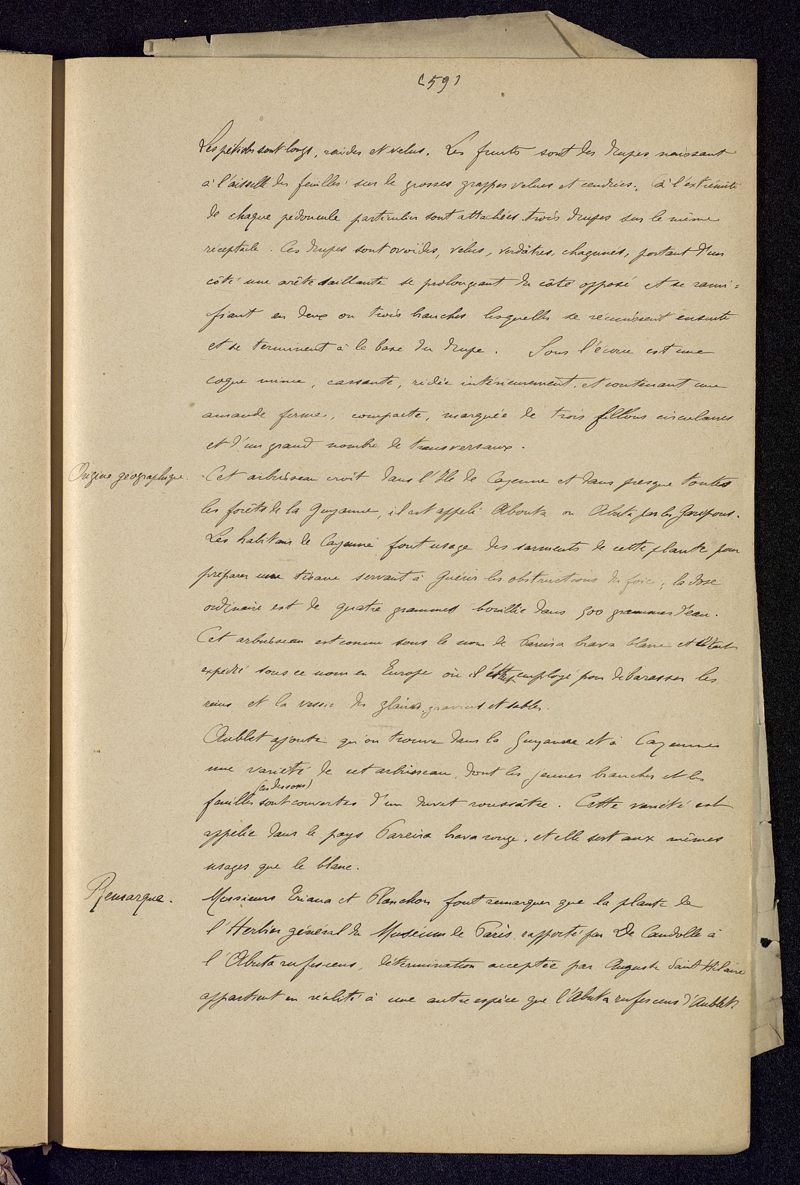 (59)
Les pétioles sont longs, raides et velus. Les fruits sont des drupes naissant
à l'aisselle des feuilles sur le grosses grappes velues et cendrées. à l'extrémité
de chaque pédoncule particulier sont attachées trois drupes sur le même
réceptacle. Ces drupes sont ovoïdes, velus, verdâtres, chagrinés, portant d'un
côté une arête saillante se prolongeant du côté opposé et se rami-
fiant en deux ou trois branches lesquelles se réunissent ensuite
et se terminent à la base du drupe. Sous l'écorce est une
coque mince, cassante, ridée intérieurement, et contenant une
amande ferme, compacte, marquée de trois sillons circulaires
et d'un grand nombre de transversaux.
Origine géographique. Cet arbrisseau croit dans l'Ile de Cayenne et dans presque toutes
les forêts de la Guyanne, il est appelé Abouta ou Abuta par les
Les habitans de Cayenne font usage des sarments de cette plante pour
préparer une tisane servant à guérir les obstructions du foie; la dose
ordinaire est de quatre grammes bouillie dans 500 grammes d'eau.
Cet arbrisseau est connu sous le nom de Pareira brava blanc et
expédié sous ce nom en Europe où il employé pour debarasser les
reins et la vessie des glaires, graviers et sables.
Aublet ajoute qu'on trouve dans la Guyanne et à Cayennes
une variété de cet arbrisseau, dont les jeunes branches et les
(en dessous)
feuilles sont couvertes d'un duvet roussâtre. Cette variété est
appelée dans le pays Pareira brava rouge, et elle sert aux mêmes
usages que le blanc.
Remarque. Messieurs Triana et Planchon font remarquer que la plante de
l'Herbier général du Museum de Paris rapporté par De Candolle à
l'Abuta rufescens, détermination acceptée par Auguste Saint Hilaire
appartient en réalité à une autre espèce que l'Abuta rufescens d'Aublet